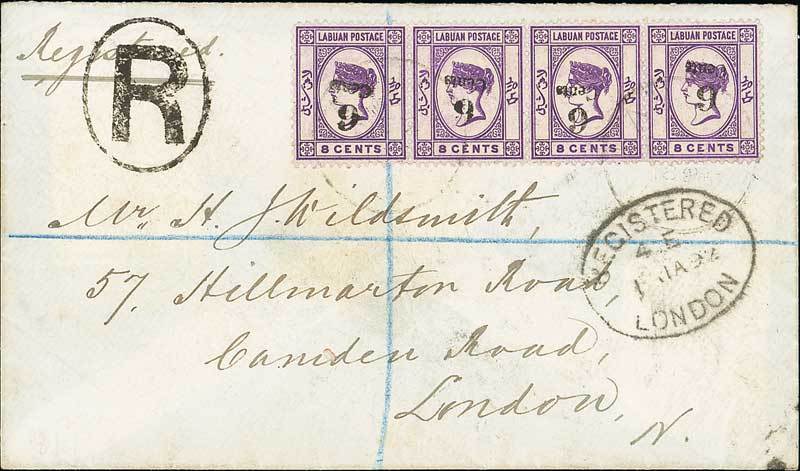 Registered.
R
LABUAN POSTAGE LABUAN POSTAGE LABUAN POSTAGE LABUAN POSTAGE
6 Cents 6 Cents 6 Cents 6 Cents
8 CENTS 8 CENTS 8 CENTS 8 CENTS
Mr. H. J. Wildsmith,
57, Hillmarton Road,
Camden Road,
London,
N.
REGISTERED
JA 92
LONDON